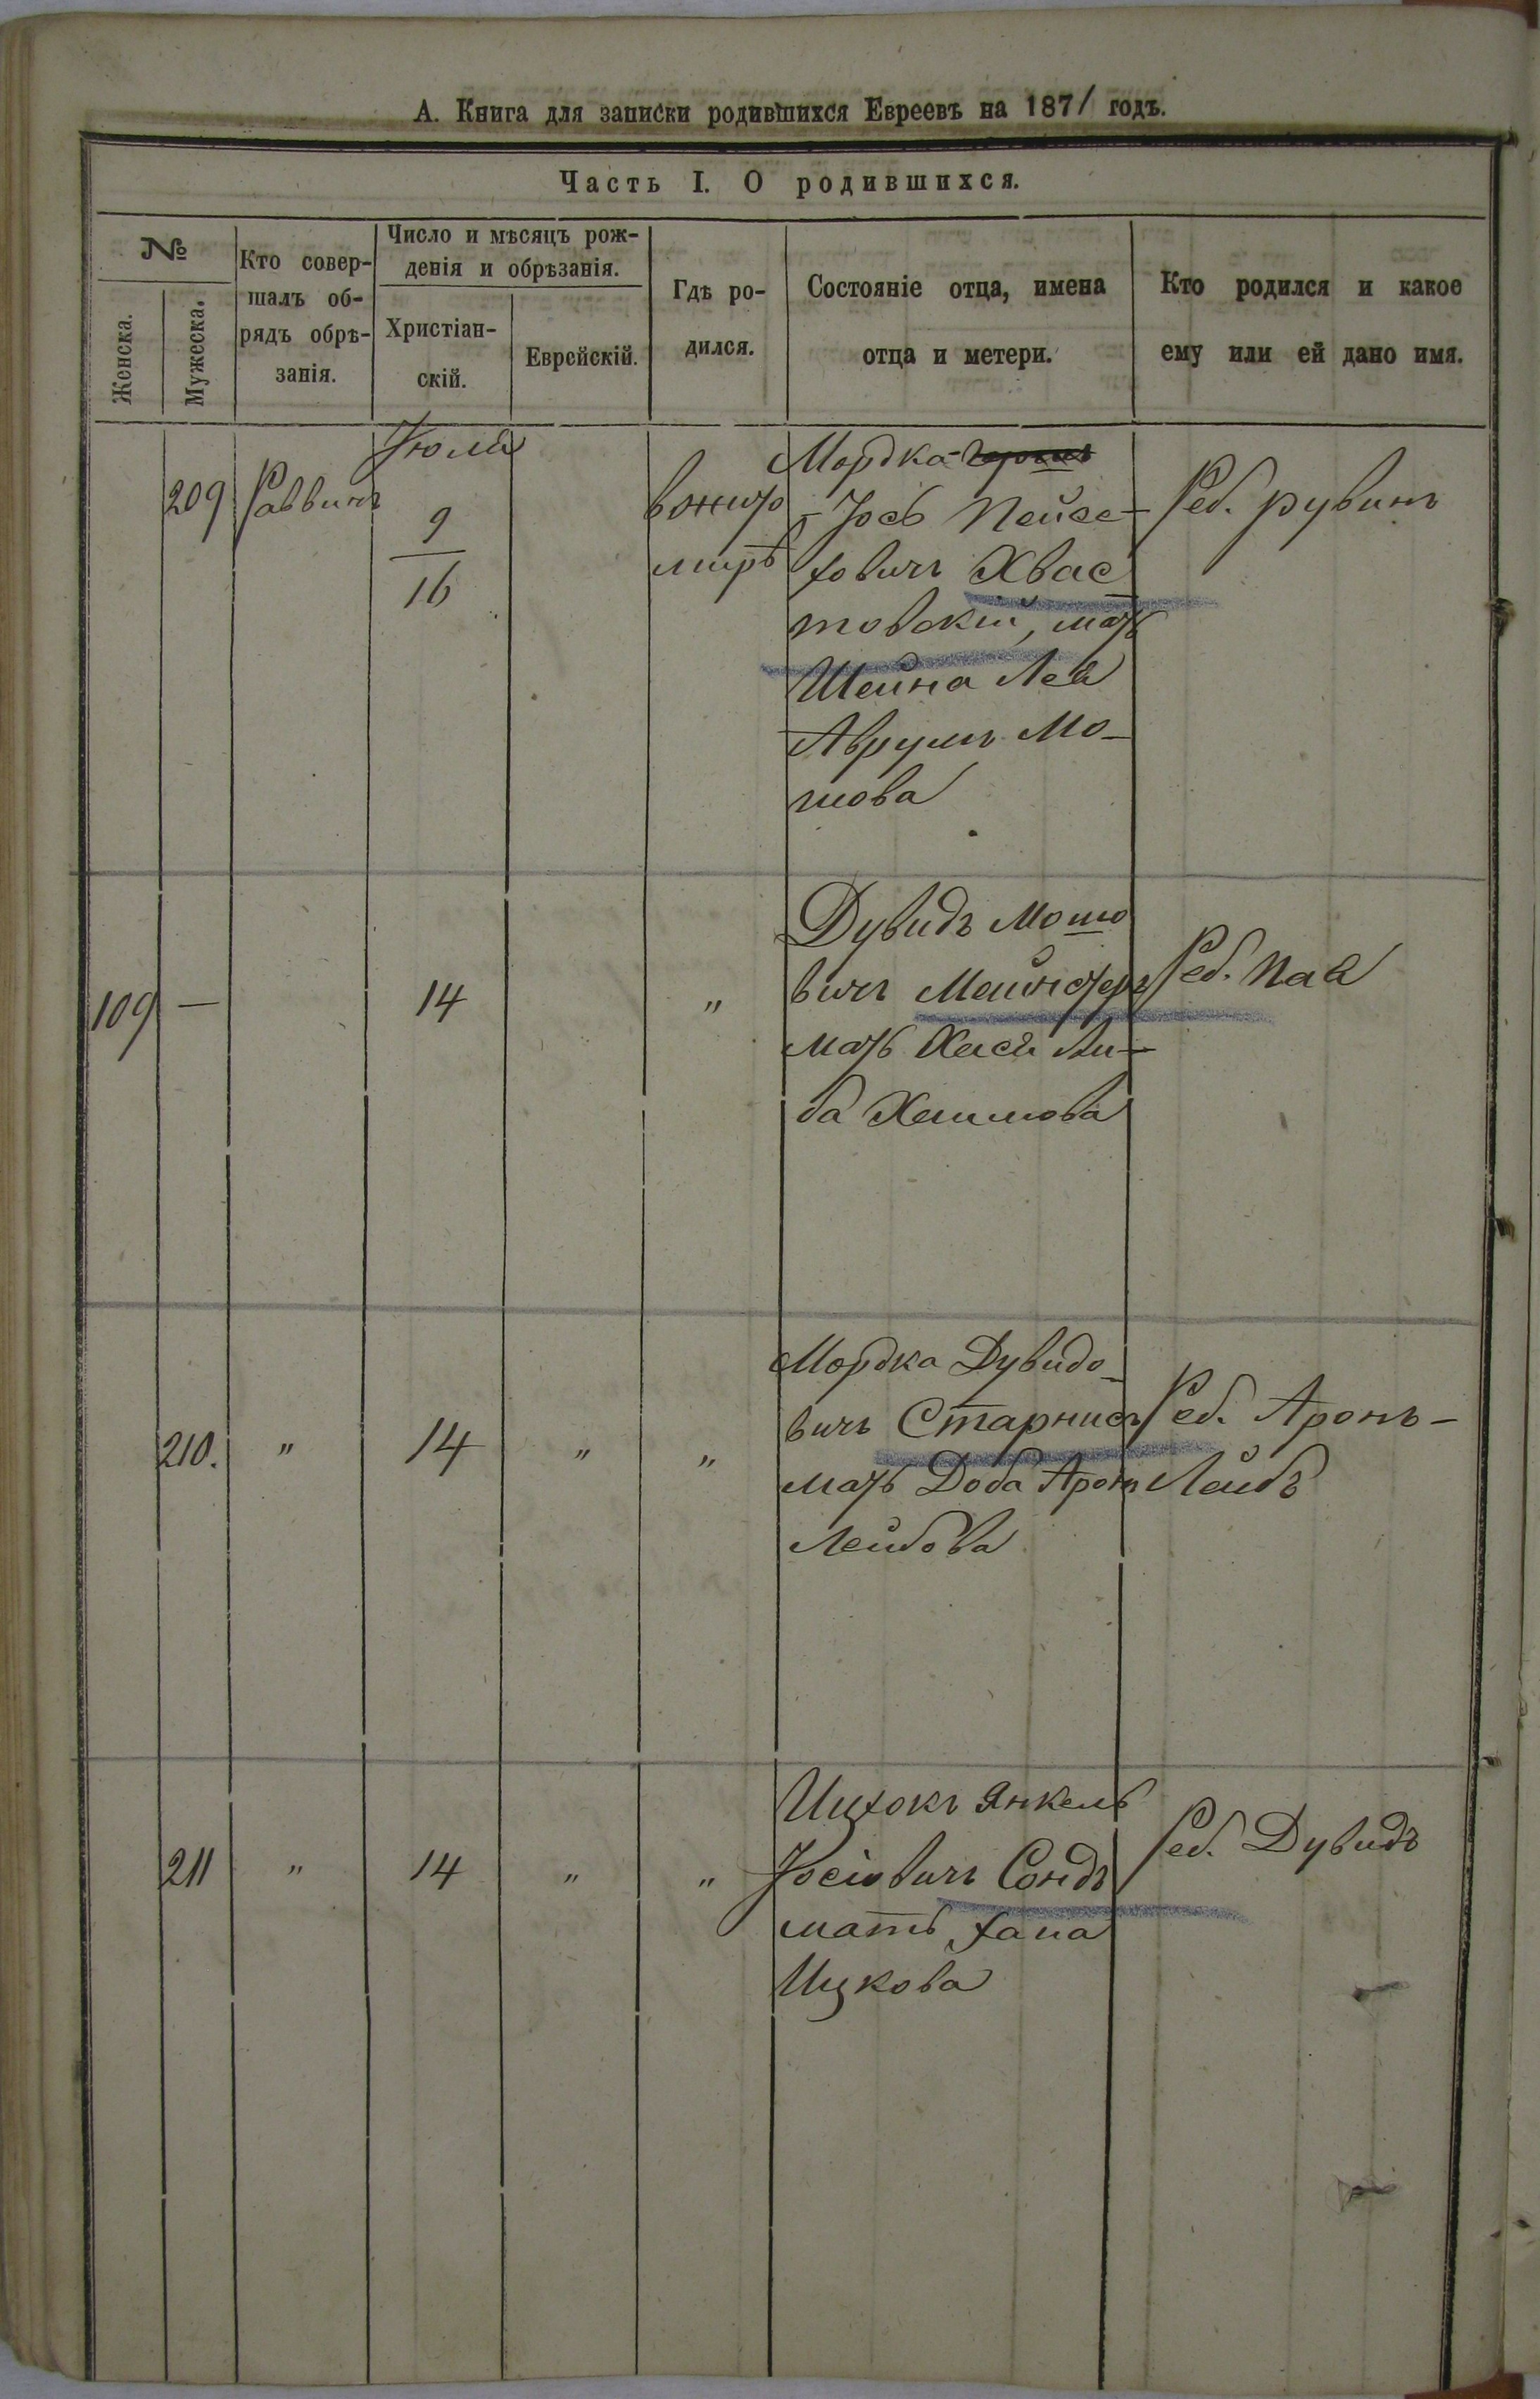 А. Книга для записки родившихся Евреевъ на 1871 годъ.
Часть I. О родившихся.
№
Женска.
Мужеска.
Кто совер-
шалъ об-
рядъ обрѣ-
занія.
Число и мѣсяцъ рож-
денія и обрѣзанія.
Христіан-
скій.
Еврейскій.
Гдѣ ро-
дился.
Состояніе отца, имена
отца и метери.
Кто родился и какое
ему или ей дано имя.
Іюля
209 Раввинъ
9
16
вжито
мирѣ
Мордка-
-Іось Пейсе-
ховичъ Хвас
товскій, мать
Шейна Лея
Аврумъ Мо-
шова
Реб. рувинъ
109 — 14 „
Дувидъ Мошо
вичъ Мейнстеръ
мать Хася Ли-
ба Хаимова
Реб. Пая
210. „ 14 „ „
Мордка Дувидо-
вичъ Старнисъ
мать Доба Арон
Лейбова
Реб. Аронъ-
Лейбъ
211 „ 14 „ „
Ицхокъ Янкель
Іосіовичъ Сондъ
мать хана
Ицкова
Реб. Дувидъ